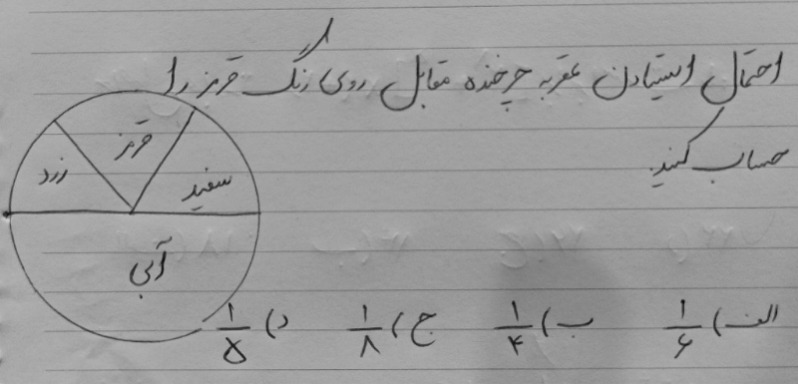 احتمال ایستادن عقربه چرخنده مقابل روی رنگ قرمز را
حساب کنید.
قرمز
زرد
سفید
آبی
الف) ۱/۶ ب) ۱/۴ ج) ۱/۸ د) ۱/۵